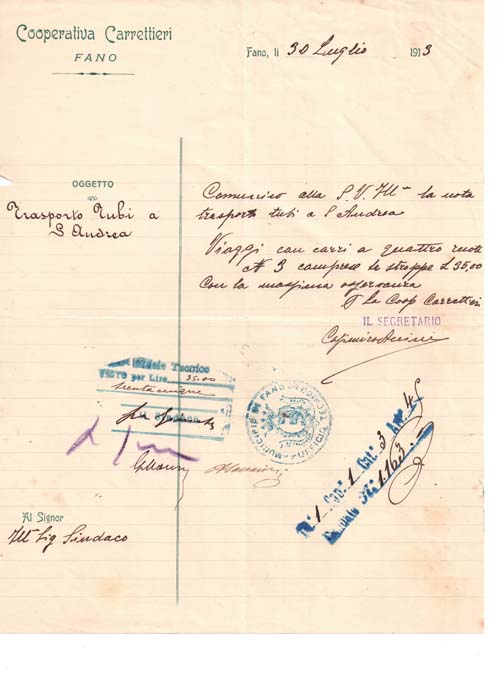 Cooperativa Carrettieri
FANO
Fano, li 30 Luglio 1913
OGGETTO
Trasporto Tubi a
S Andrea
Comunico alla S. V. Ill^ma la nota
trasporto tubi a S Andrea
Viaggi con carri a quattro ruote
N 3 comprese le stroppe L 35,00
Con la massima osservanza
La Coop Carrettieri
IL SEGRETARIO
Tecnico
VISTO per Lire 35.00
trenta cinque
MUNICIPIO DI FANO
UFFICIO
Tit. 1 Cap. 1 Cat. 3 Art. 45
1163
Al Signor
Ill^mo Sig Sindaco